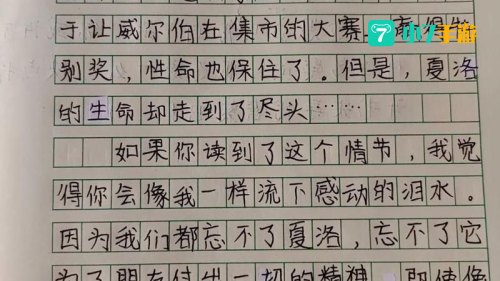 于让威尔伯在集市的大赛
小7手游
别奖，性命也保住了。但是，夏洛
的生命却走到了尽头……
如果你读到了这个情节，我觉
得你会像我一样流下感动的泪水。
因为我们都忘不了夏洛，忘不了它
为了朋友付出一切的精神。即使像